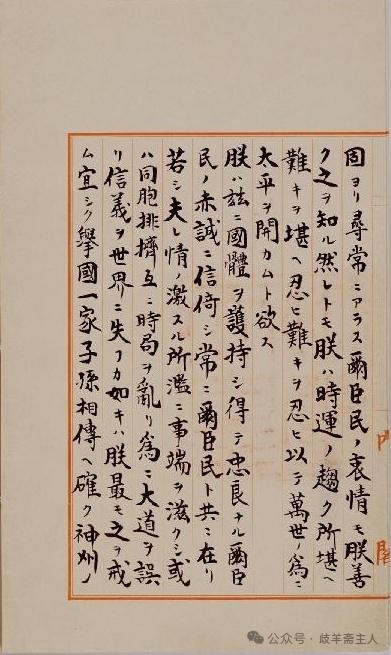 固ヨリ尋常ニアラス爾臣民ノ衷情モ朕善
ク之ヲ知ル然レトモ朕ハ時運ノ趨ク所堪ヘ
難キヲ堪ヘ忍ヒ難キヲ忍ヒ以テ萬世ノ爲ニ
太平ヲ開カムト欲ス
朕ハ茲ニ國體ヲ護持シ得テ忠良ナル爾臣
民ノ赤誠ニ信倚シ常ニ爾臣民ト共ニ在リ
若シ夫レ情ノ激スル所濫ニ事端ヲ滋クシ或
ハ同胞排擠互ニ時局ヲ亂リ爲ニ大道ヲ誤
リ信義ヲ世界ニ失フカ如キハ朕最モ之ヲ戒
ム宜シク擧國一家子孫相傳ヘ確ク神州ノ
公众号 · 歧羊斋主人